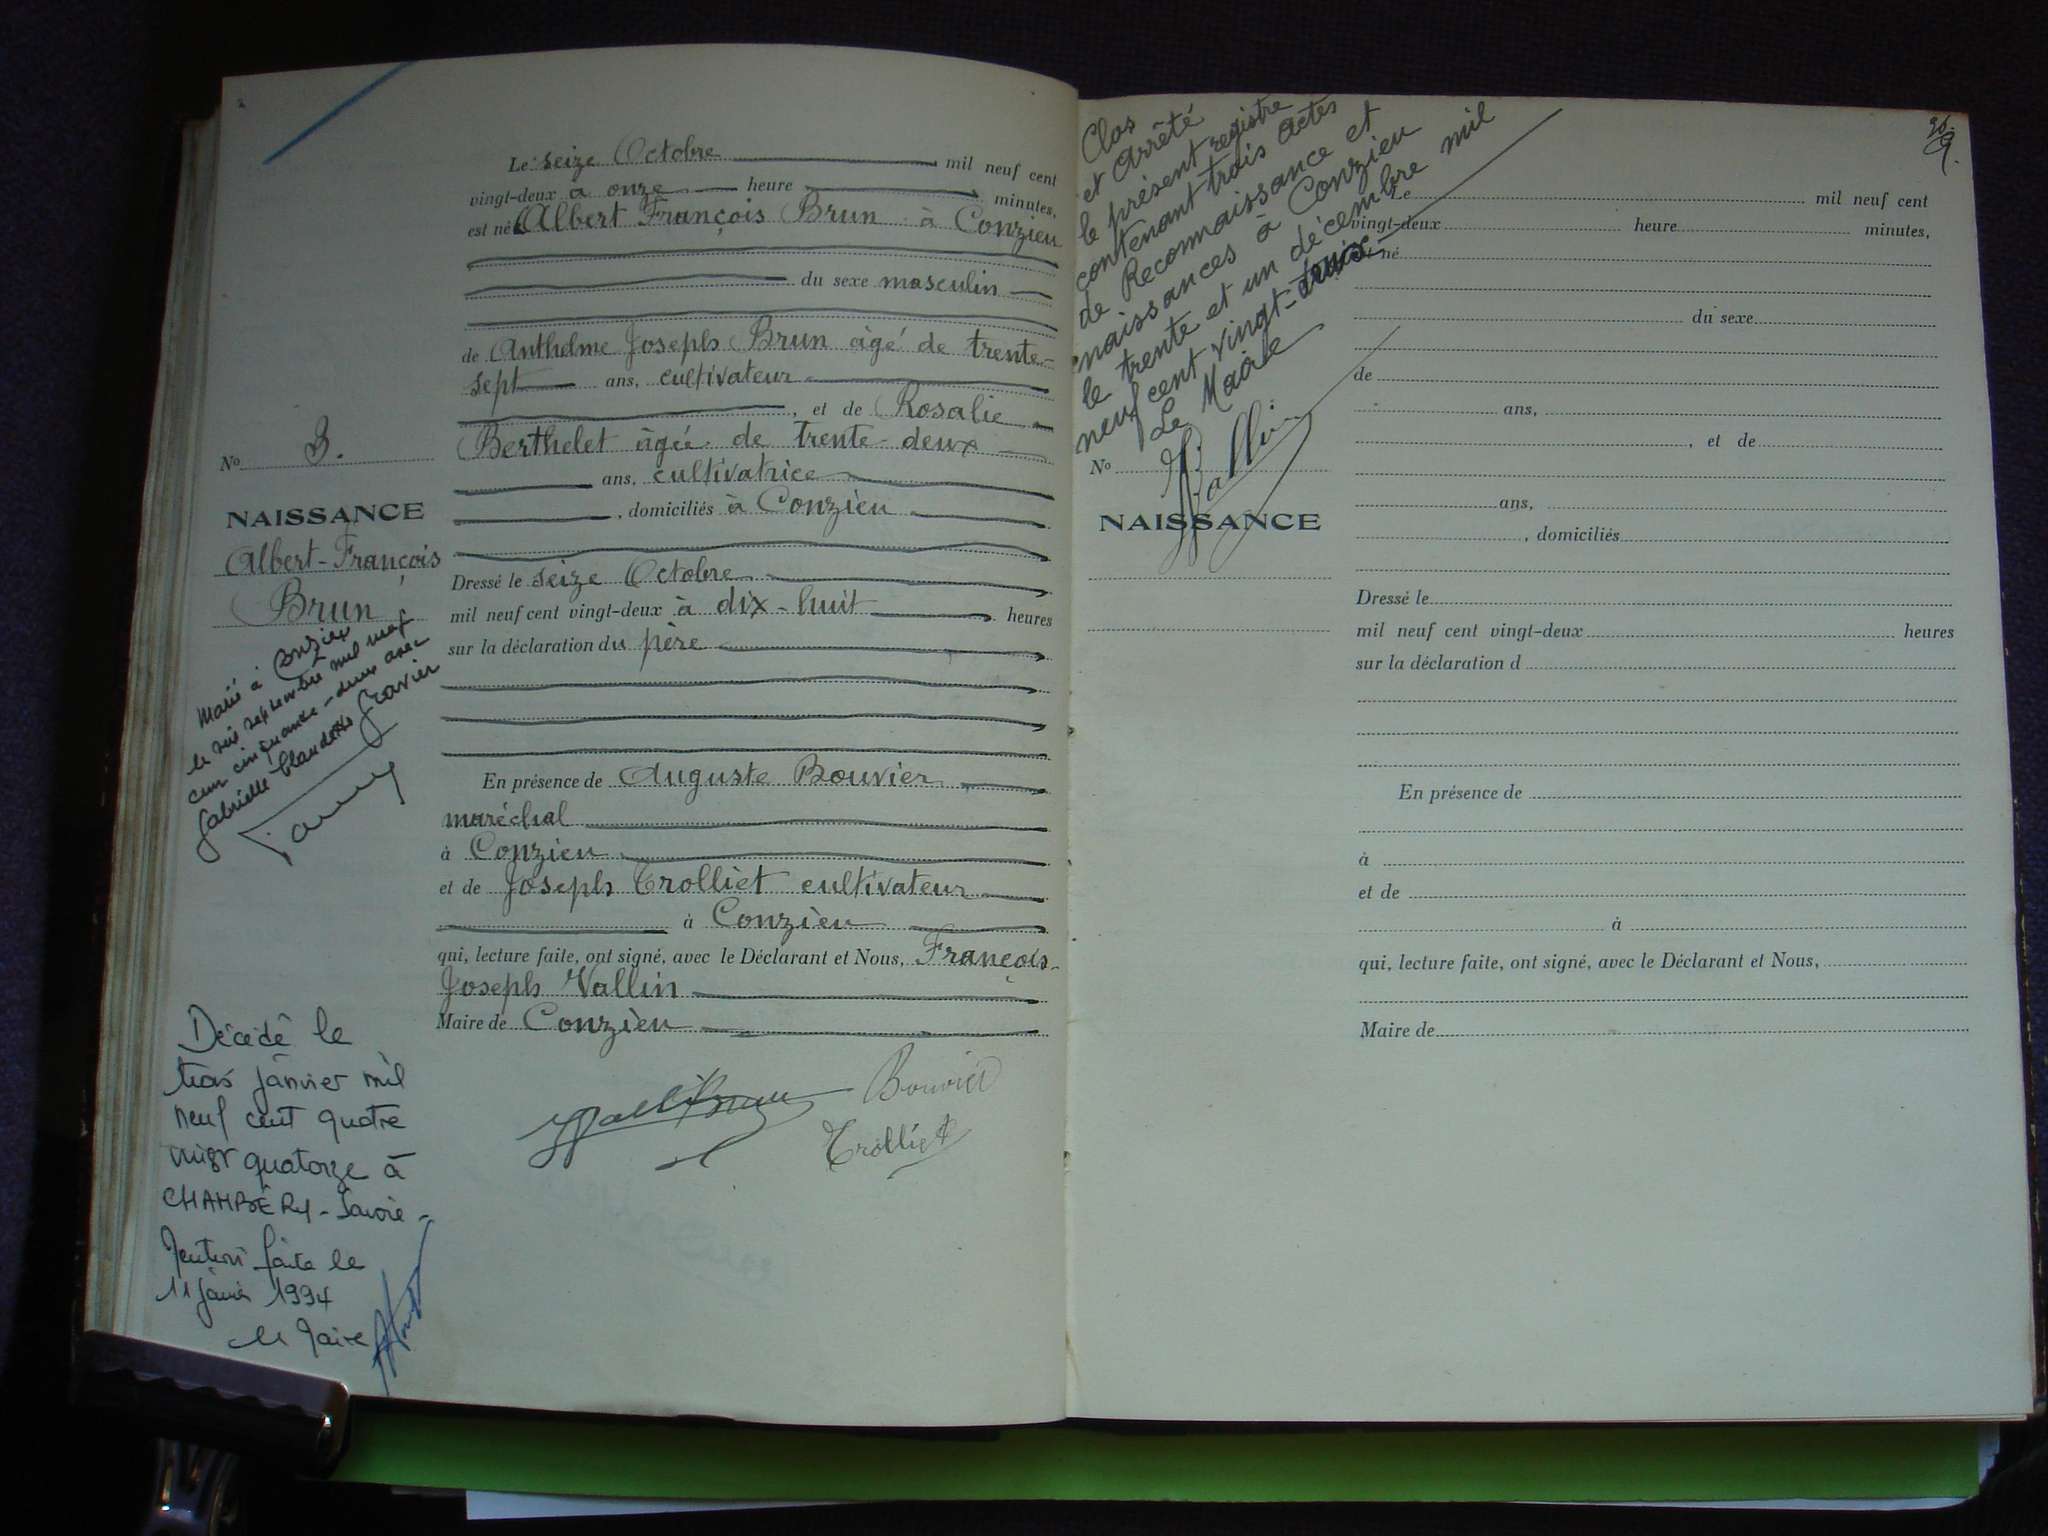 Le seize Octobre mil neuf cent
vingt-deux à onze heure minutes,
est né Albert François Brun à Conzieu
du sexe masculin
de Anthelme Joseph Brun âgé de trente-
sept ans, cultivateur
, et de Rosalie
Berthelet âgée de trente-deux
ans, cultivatrice
, domiciliés à Conzieu
Dressé le seize Octobre
mil neuf cent vingt-deux à dix-huit heures
sur la déclaration du père
En présence de Auguste Bouvier
maréchal
à Conzieu
et de Joseph Trolliet cultivateur
à Conzieu
qui, lecture faite, ont signé, avec le Déclarant et Nous, François-
Joseph Vallin
Maire de Conzieu
Brun Bouvier
Trolliet
No 3.
NAISSANCE
Albert-François
Brun
Marié à Conzieu
le six septembre mil neuf
cent cinquante-deux avec
Gabrielle Claudette Gravier
Décédé le
trois janvier mil
neuf cent quatre
vingt quatorze à
CHAMBÉRY - Savoie -
Mention faite le
11 janvier 1994
Le Maire
Clos
et Arrêté
le présent registre
contenant trois actes
de Reconnaissance et
naissances à Conzieu
le trente et un décembre mil
neuf cent vingt-
Le Maire
Vallin
Le mil neuf cent
vingt-deux heure minutes,
né
du sexe
de
ans,
, et de
No
ans,
NAISSANCE
, domiciliés
Dressé le
mil neuf cent vingt-deux heures
sur la déclaration d
En présence de
à
et de
à
qui, lecture faite, ont signé, avec le Déclarant et Nous,
Maire de